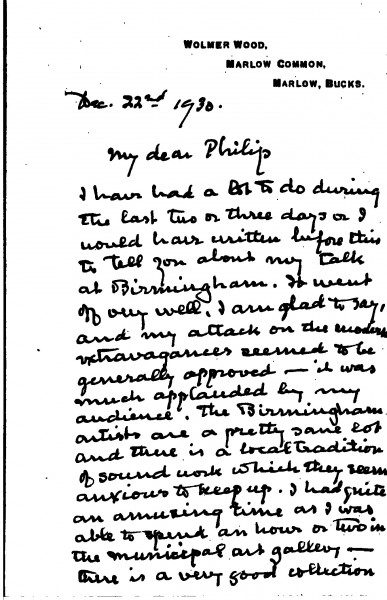 WOLMER WOOD,
MARLOW COMMON,
MARLOW, BUCKS.
Dec. 22nd 1930.
My dear Philip
I have had a lot to do during
the last two or three days or I
would have written before this
to tell you about my talk
at Birmingham. It went
off very well, I am glad to say,
and my attack on the modern
extravagances seemed to be
generally approved — it was
much applauded by my
audience. The Birmingham
artists are a pretty sane lot
and there is a local tradition
of sound work which they seem
anxious to keep up. I had quite
an amusing time as I was
able to spend an hour or two in
the municipal art gallery —
there is a very good collection